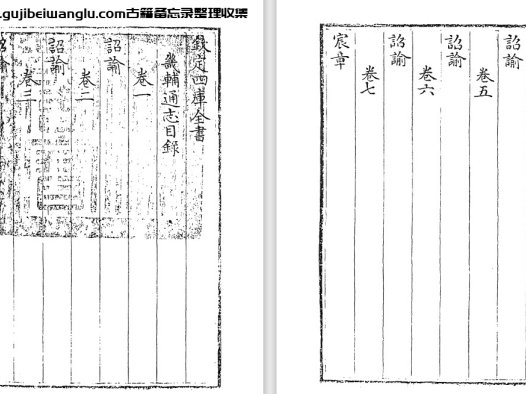 .gujibeiwanglu.com古籍备忘录整理收集
欽定四庫全書
畿輔通志目錄
卷一
詔諭
卷二
詔諭
卷三
詔諭
詔諭
卷五
詔諭
卷六
詔諭
卷七
宸章